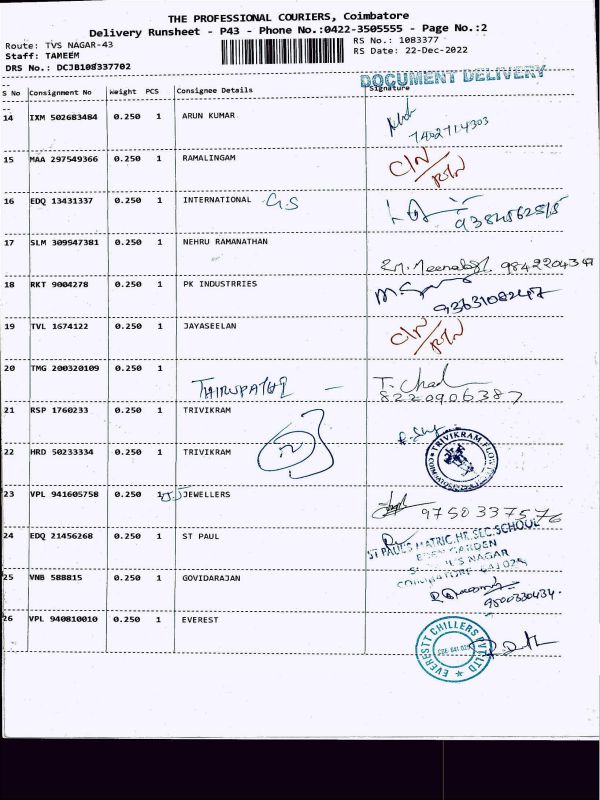 THE PROFESSIONAL COURIERS, Coimbatore
Delivery Runsheet - P43 - Phone No.:0422-3505555 - Page No.:2
Route: TVS NAGAR-43
RS No.: 1083377
Staff: TAMEEM
RS Date: 22-Dec-2022
DRS No.: DCJB108337702
DOCUMENT DELIVERY
S No Consignment No Weight PCS Consignee Details Signature
14 IXM 502683484 0.250 1 ARUN KUMAR
7402714303
15 MAA 297549366 0.250 1 RAMALINGAM C/N R/N
16 EDQ 13431337 0.250 1 INTERNATIONAL G.S
17 SLM 309947381 0.250 1 NEHRU RAMANATHAN
18 RKT 9004278 0.250 1 PK INDUSTRRIES
19 TVL 1674122 0.250 1 JAYASEELAN C/N R/N
20 TMG 200320109 0.250 1
THIRUPATHI
8220906387
21 RSP 1760233 0.250 1 TRIVIKRAM
22 HRD 50233334 0.250 1 TRIVIKRAM
TRIVIKRAM
23 VPL 941605758 0.250 1 J.J JEWELLERS
9750337576
24 EDQ 21456268 0.250 1 ST PAUL
ST PAUL'S MATRIC.HR.SEC.SCHOOL
EDEN GARDEN
NAGAR
25 VNB 588815 0.250 1 GOVIDARAJAN
9500330434
26 VPL 940810010 0.250 1 EVEREST
EVERESTT CHILLERS PVT LTD